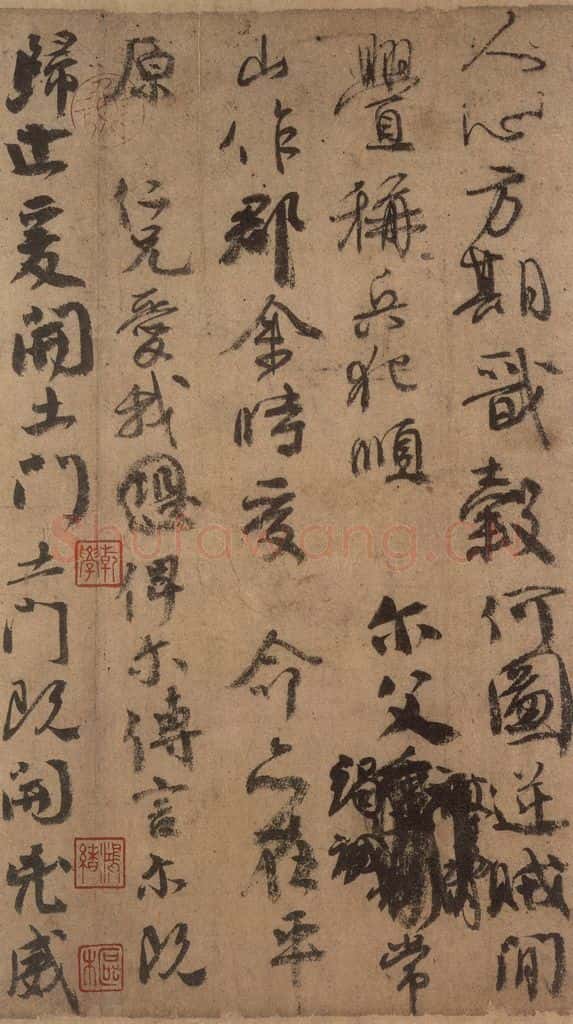 人心方期戩穀何圖逆賊閒
釁稱兵犯順 尔父常
山作郡余時受 命亦在平
原 仁兄愛我俾尔傳言尔既
歸止爰開土門土門既開凶威